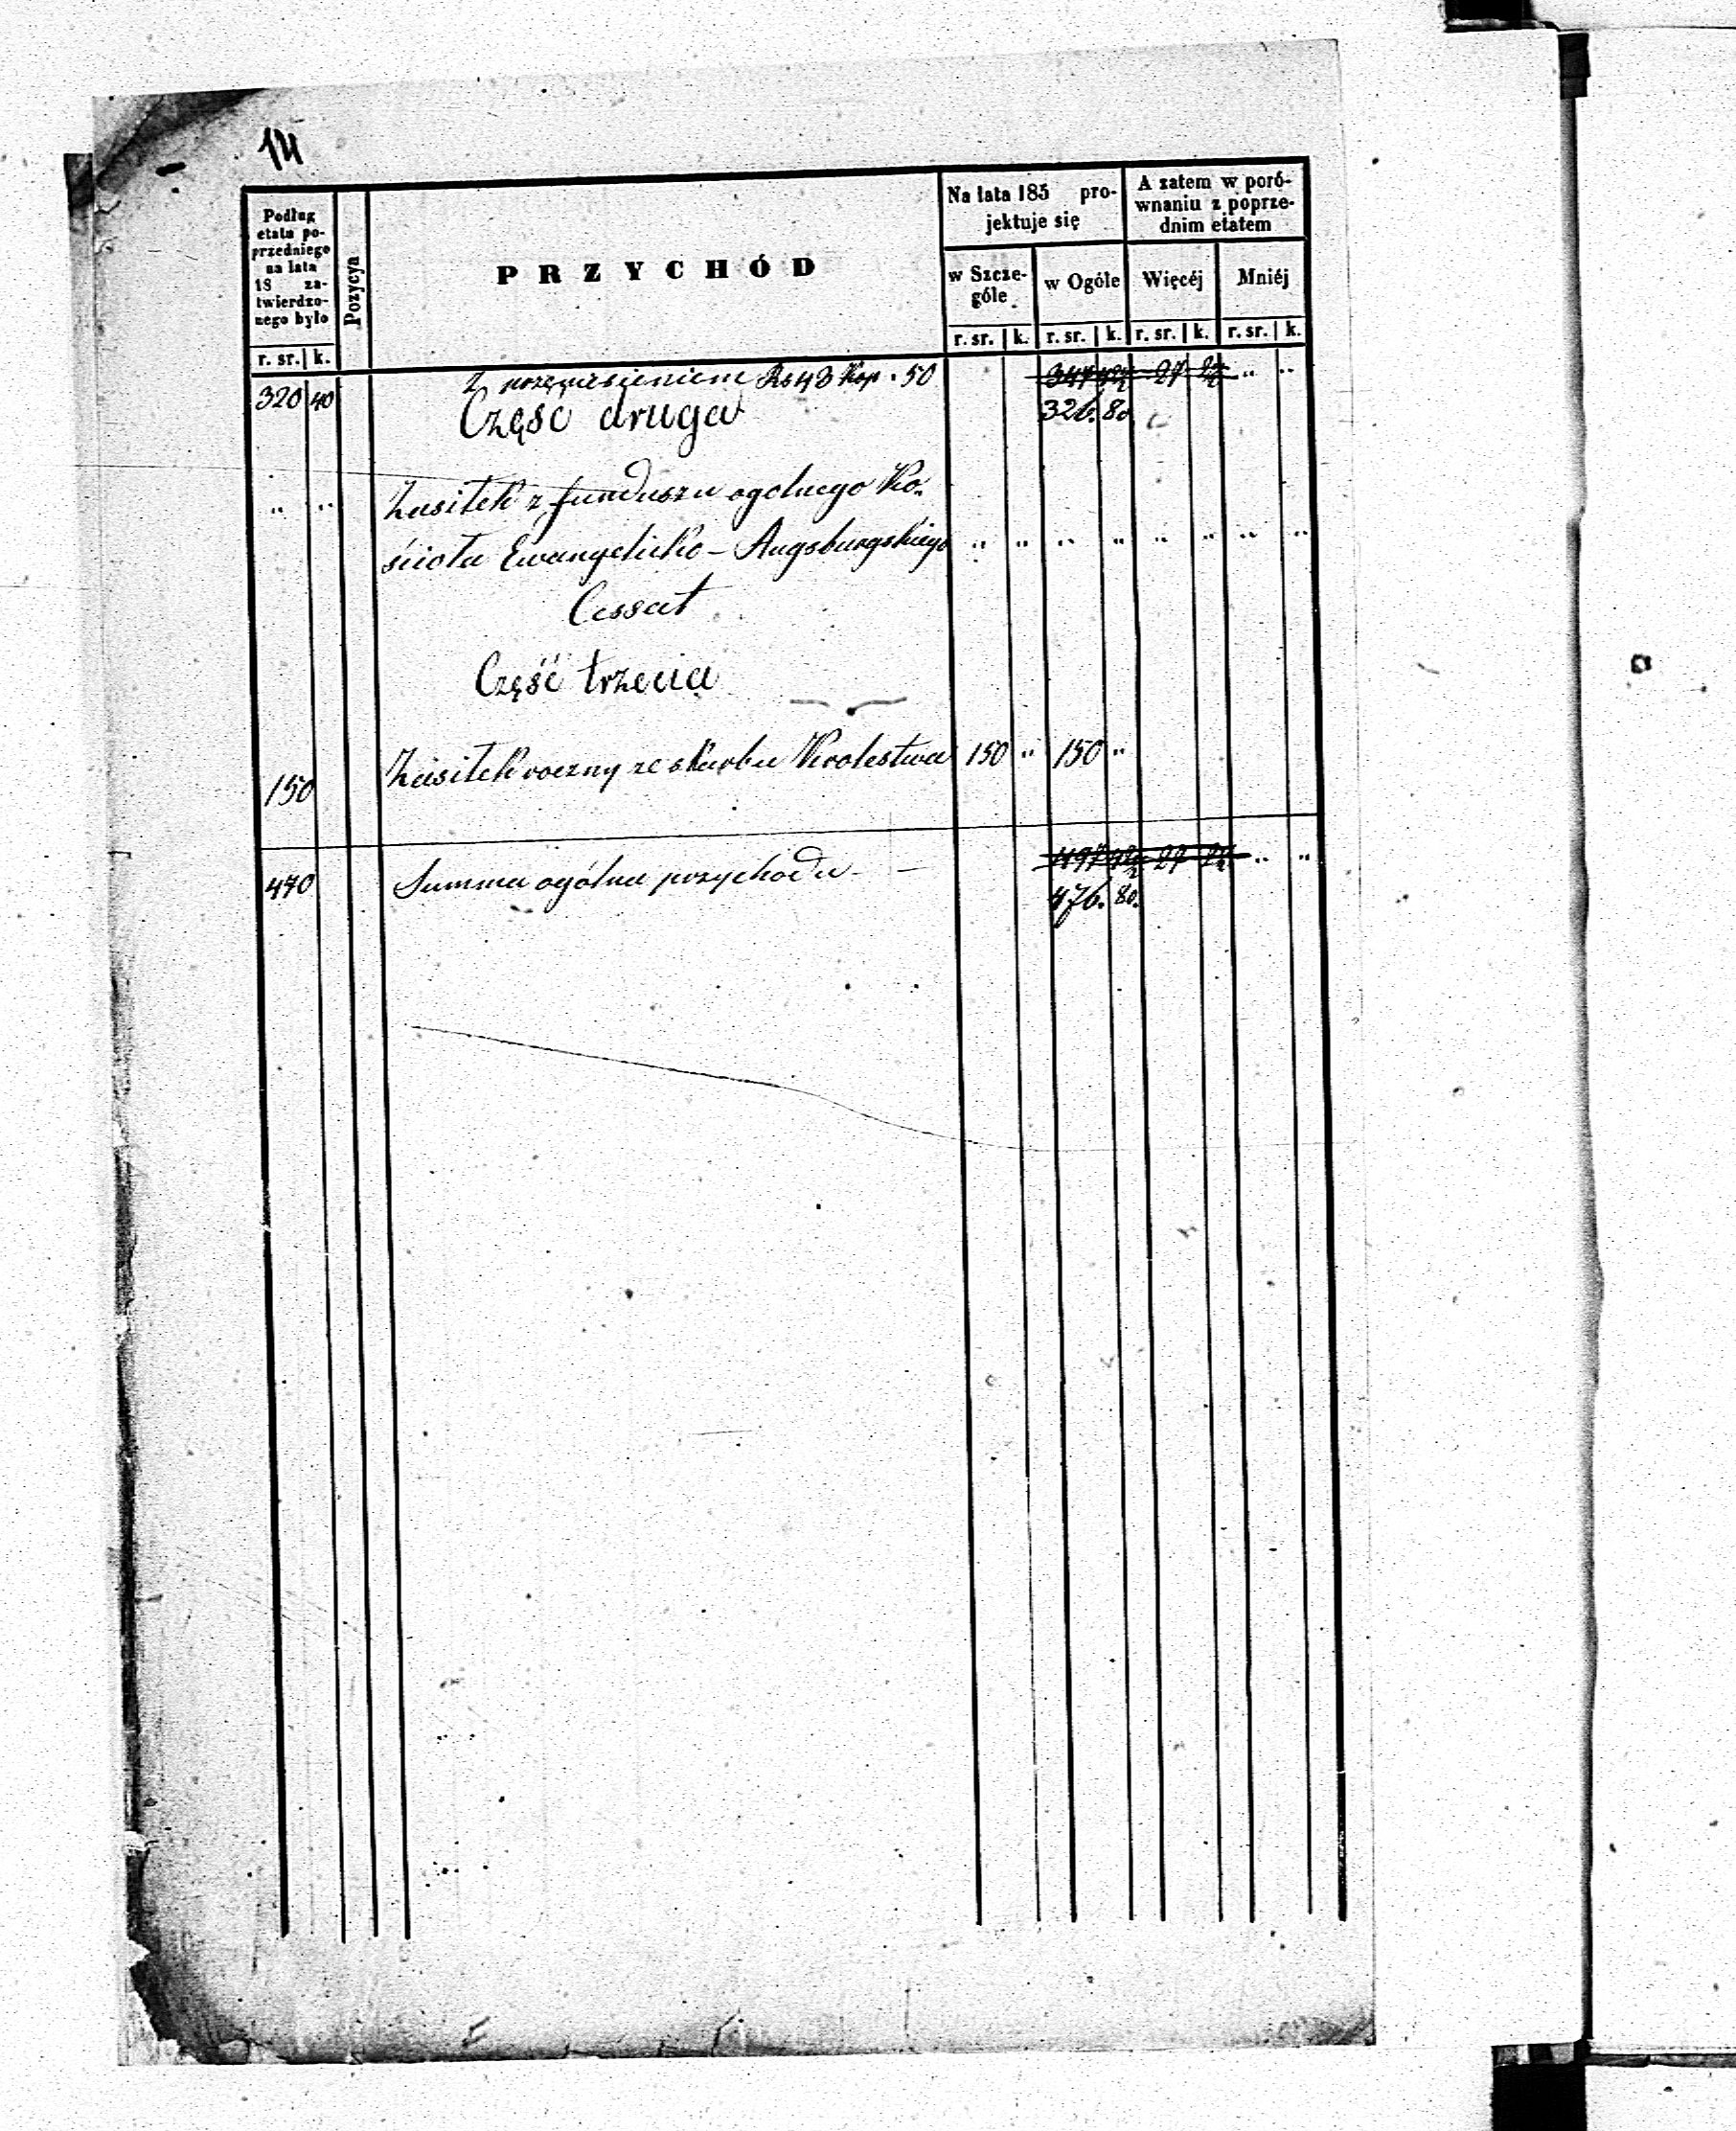 14
Podług
etatu po-
przedniego
na lata
18 za-
twierdzo-
nego było
r. sr. k.
Pozycya
PRZYCHÓD
Na lata 185 pro-
jektuje się
w Szcze-
góle
r. sr. k.
w Ogóle
r. sr. k.
A zatem w poró-
wnaniu z poprze-
dnim etatem
Więcéj
r. sr. k.
Mniéj
r. sr. k.
Z przeniesieniem Rs 43 Kop. 50
320 40 Część druga 326. 80
Zasiłek z funduszu ogolnego Ko-
ścioła Ewangelicko-Augsburgskiego
Cessat
Część trzecia
150 Zasiłek roczny ze skarbu Krolestwa 150 " 150 "
470 Summa ogólna przychodu 476. 80.